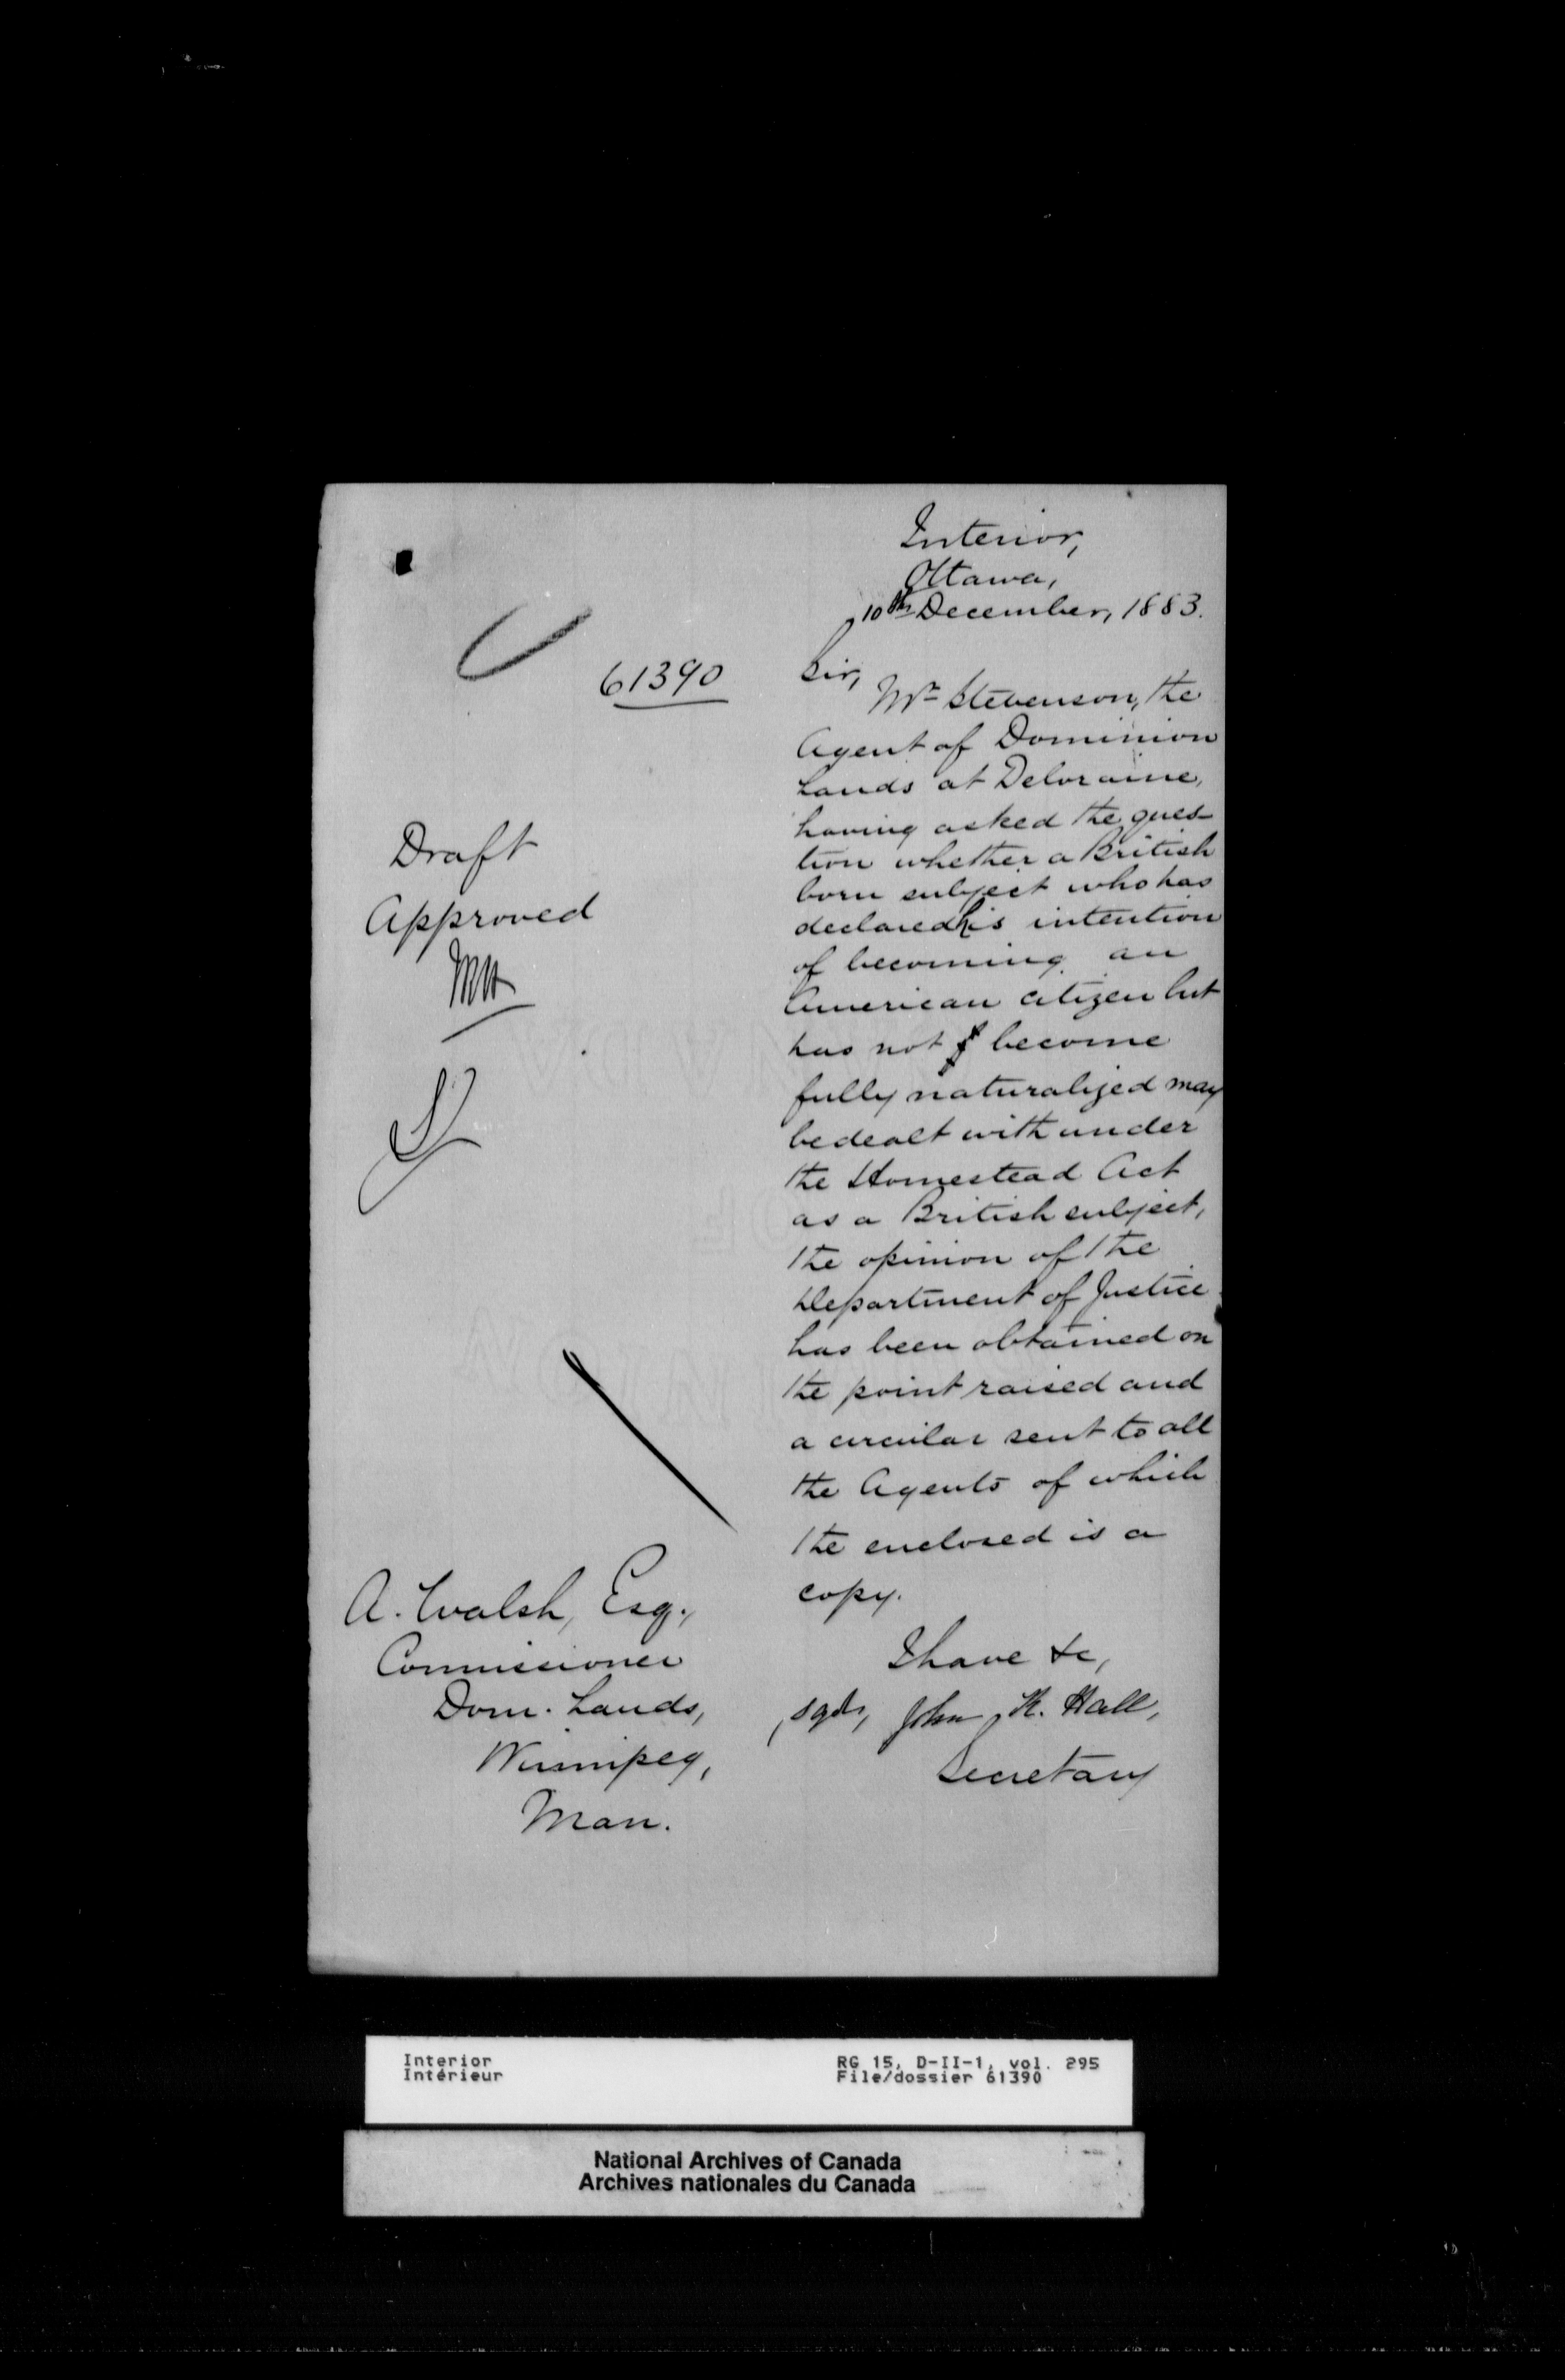 Interior,
Ottawa,
10th December, 1883.
61390
Sir,
Mr Stevenson, the
Agent of Dominion
Lands at Deloraine,
having asked the ques-
tion whether a British
born subject who has
declared his intention
of becoming an
American citizen but
has not become
fully naturalized may
be dealt with under
the Homestead Act
as a British subject,
the opinion of the
Department of Justice
has been obtained on
the point raised and
a circular sent to all
the Agents of which
the enclosed is a
copy.
I have &c,
sgd, John R. Hall,
Secretary
Draft
Approved
A. Walsh, Esq.,
Commissioner
Dom. Lands,
Winnipeg,
Man.
Interior
Intérieur
RG 15, D-II-1, vol. 295
File/dossier 61390
National Archives of Canada
Archives nationales du Canada